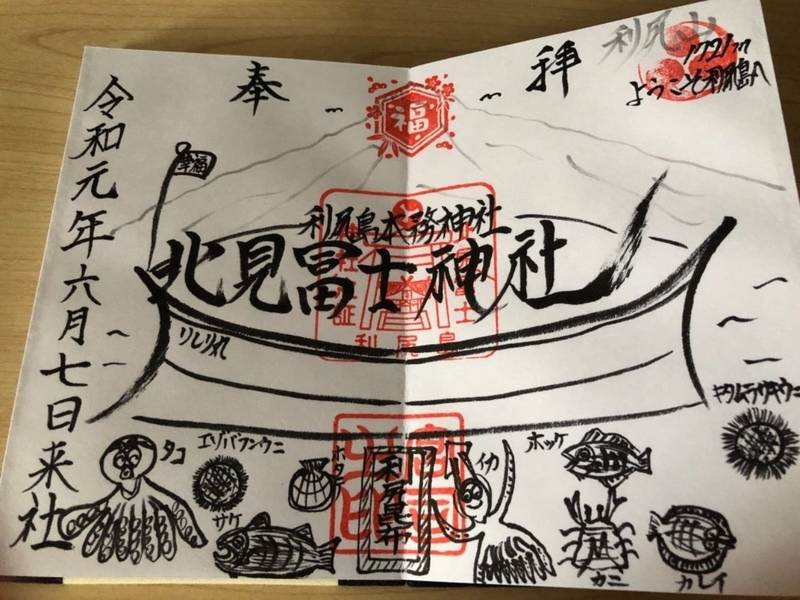 利尻山
1721m
ようこそ利尻島へ
奉拝
福
利尻島本務神社
北見冨士神社
りしり丸
利尻島
令和元年六月七日来社
タコ
エゾバフンウニ
サケ
ホタテ
利尻昆布
イカ
ホッケ
カニ
カレイ
キタムラサキウニ